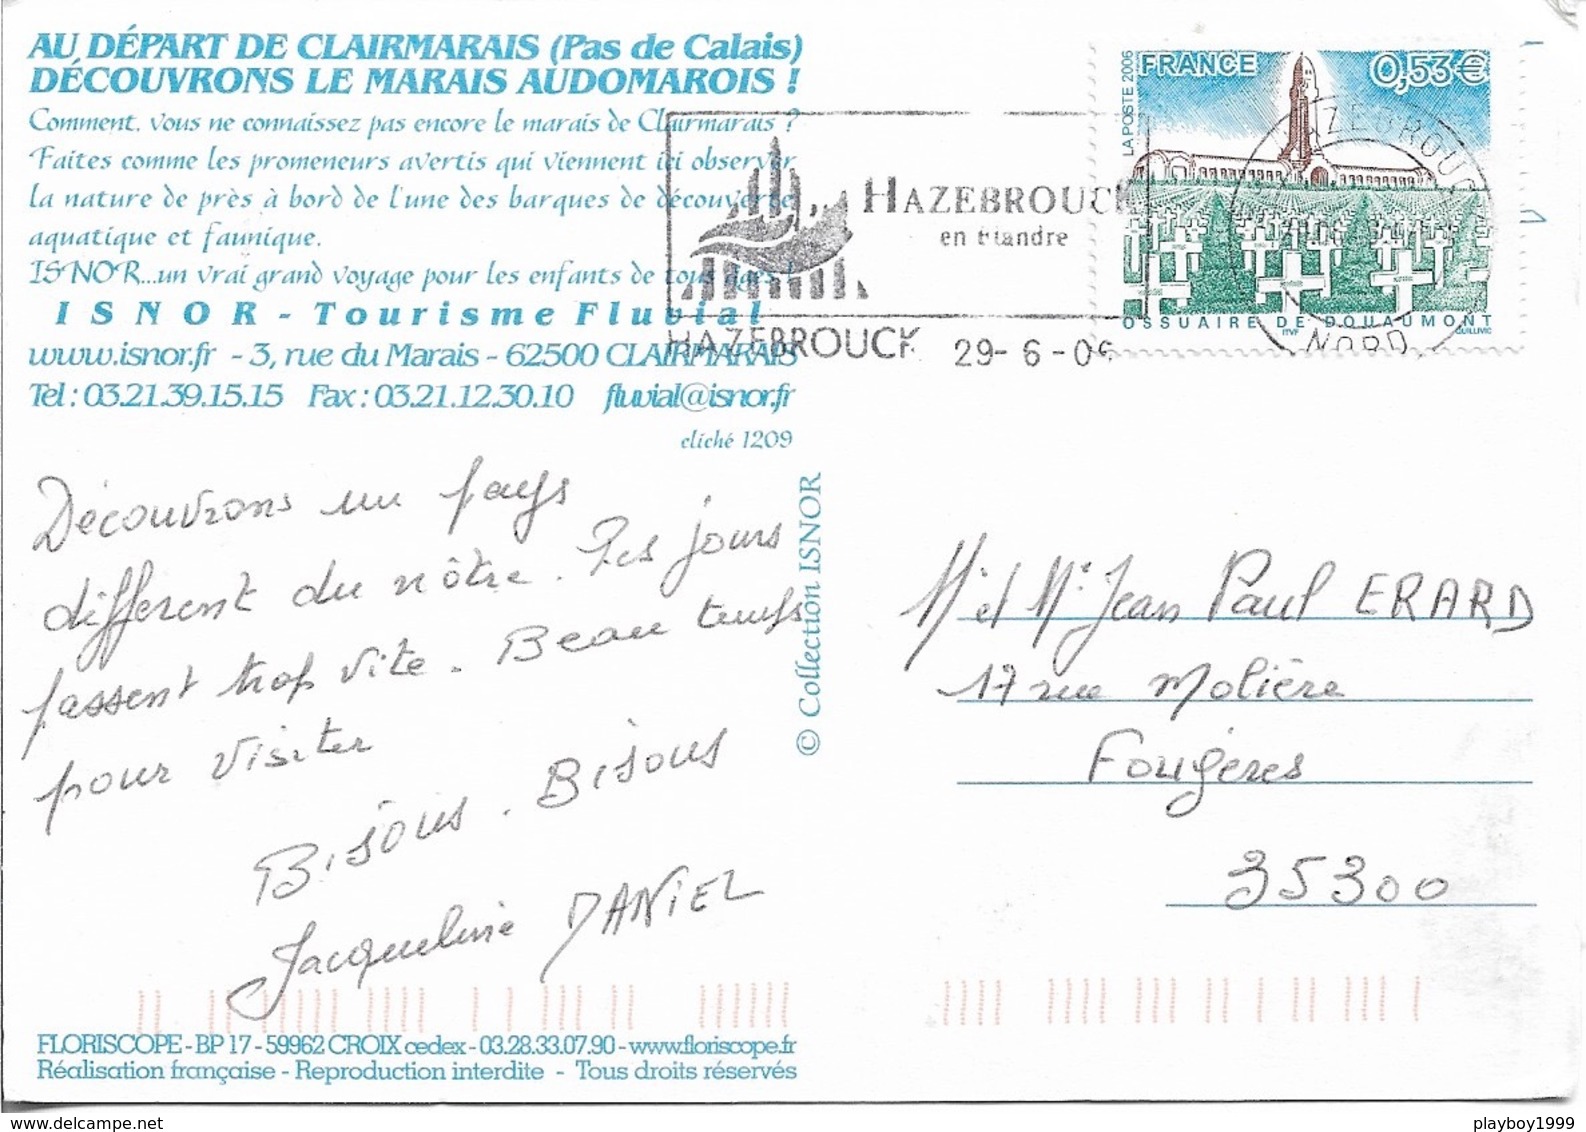 AU DÉPART DE CLAIRMARAIS (Pas de Calais)
DÉCOUVRONS LE MARAIS AUDOMAROIS !
Comment, vous ne connaissez pas encore le marais de Clairmarais ?
Faites comme les promeneurs avertis qui viennent ici observer
la nature de près à bord de l'une des barques de découverte
aquatique et faunique.
ISNOR...un vrai grand voyage pour les enfants de tous âges !
ISNOR - Tourisme Fluvial
www.isnor.fr - 3, rue du Marais - 62500 CLAIRMARAIS
Tel : 03.21.39.15.15 Fax : 03.21.12.30.10 fluvial@isnor.fr
cliché 1209
HAZEBROUCK
en Flandre
HAZEBROUCK 29-6-06
LA POSTE 2006
FRANCE 0,53 €
OSSUAIRE DE DOUAUMONT
ITVF QUILLIVIC
HAZEBROUCK
NORD
Découvrons un pays
différent du nôtre. Les jours
passent trop vite. Beau temps
pour visiter
Bisous. Bisous
Jacqueline DANIEL
© Collection ISNOR
Mr et Me Jean Paul ERARD
17 rue Molière
Fougères
35300
FLORISCOPE - BP 17 - 59962 CROIX cedex - 03.28.33.07.90 - www.floriscope.fr
Réalisation française - Reproduction interdite - Tous droits réservés
playboy1999